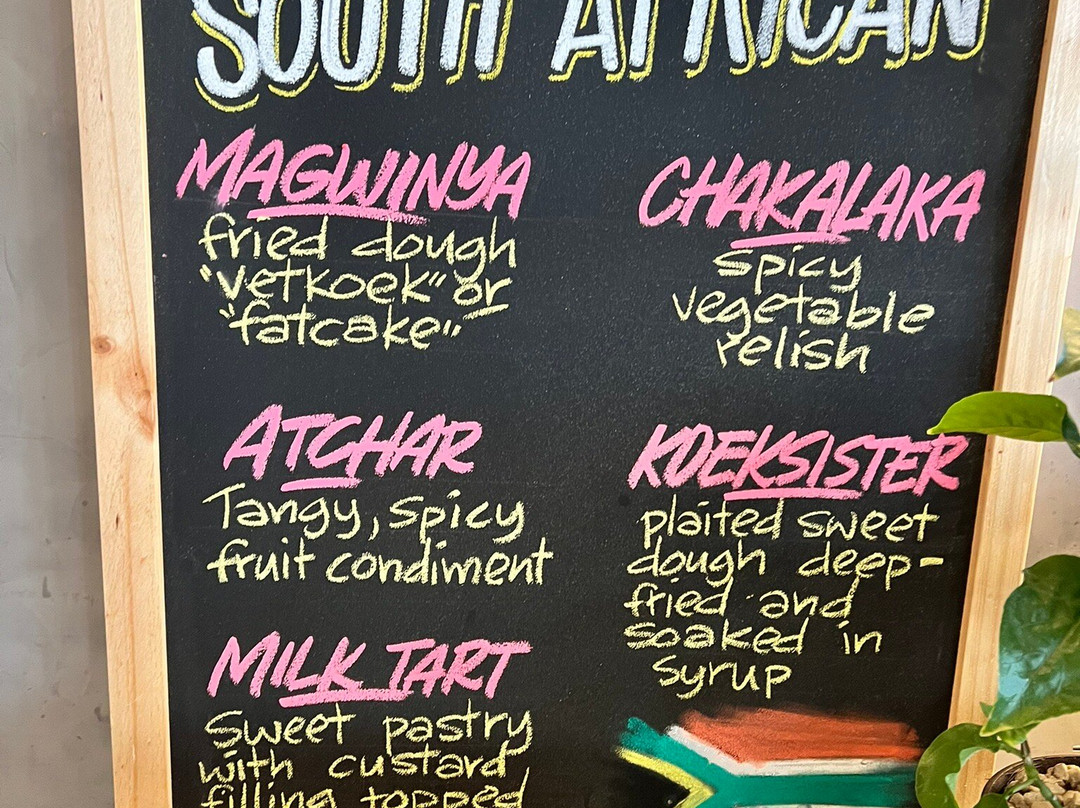 SOUTH AFRICAN
MAGWINYA
fried dough
"vetkoek" or
"fatcake"
ATCHAR
Tangy, spicy
fruit condiment
MILK TART
Sweet pastry
with custard
filling topped
CHAKALAKA
spicy
vegetable
relish
KOEKSISTER
plaited sweet
dough deep-
fried and
soaked in
syrup